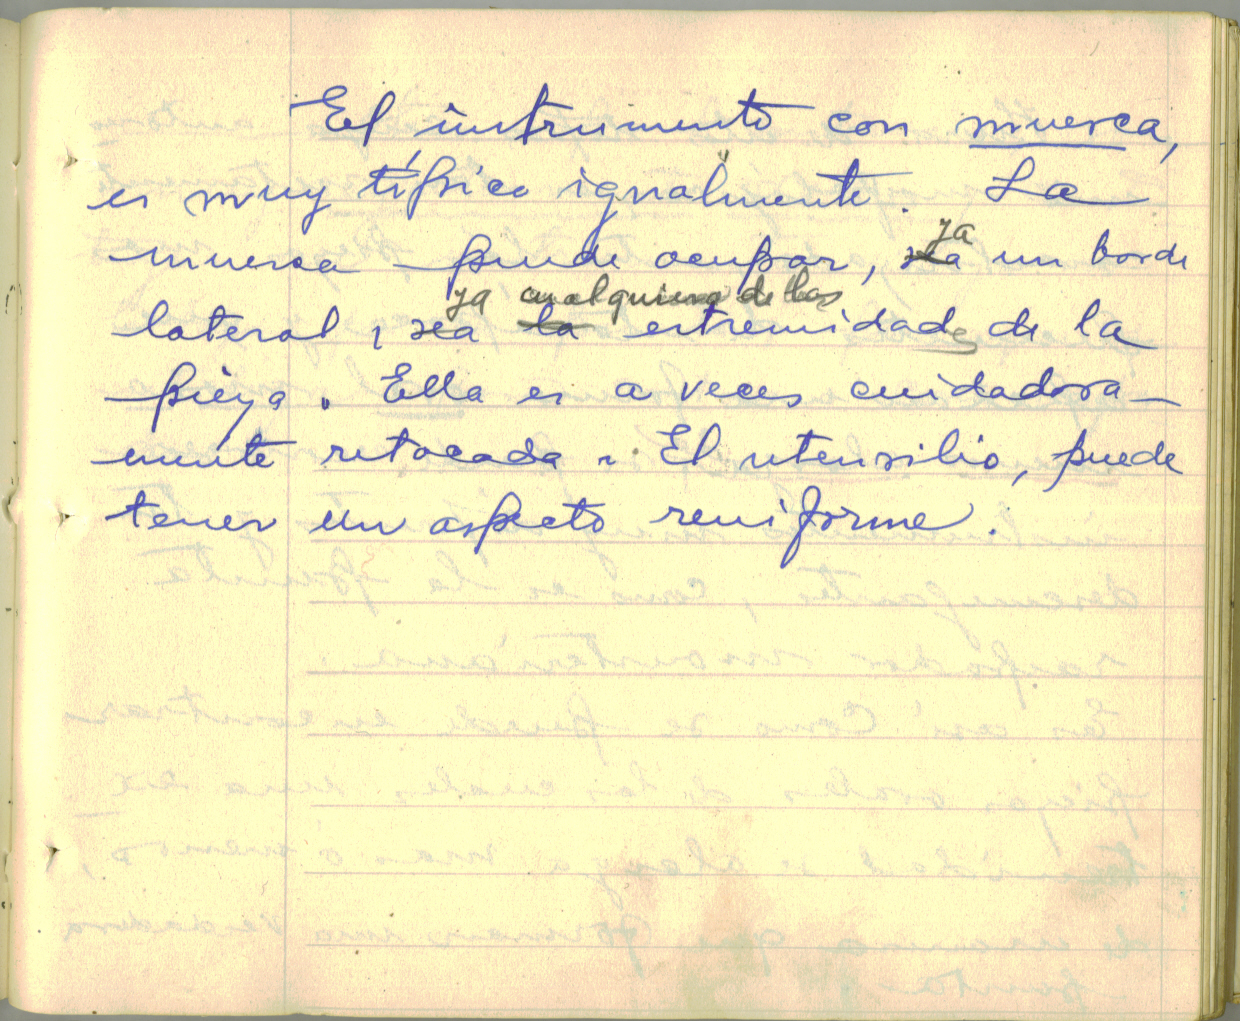 El instrumento con muesca,
es muy típico igualmente. La
muesca puede ocupar, ya un borde
lateral, ya cualquiera de las extremidades de la
pieza. Ella es a veces cuidadosa-
mente retocada. El utensilio, puede
tener un aspecto reniforme.